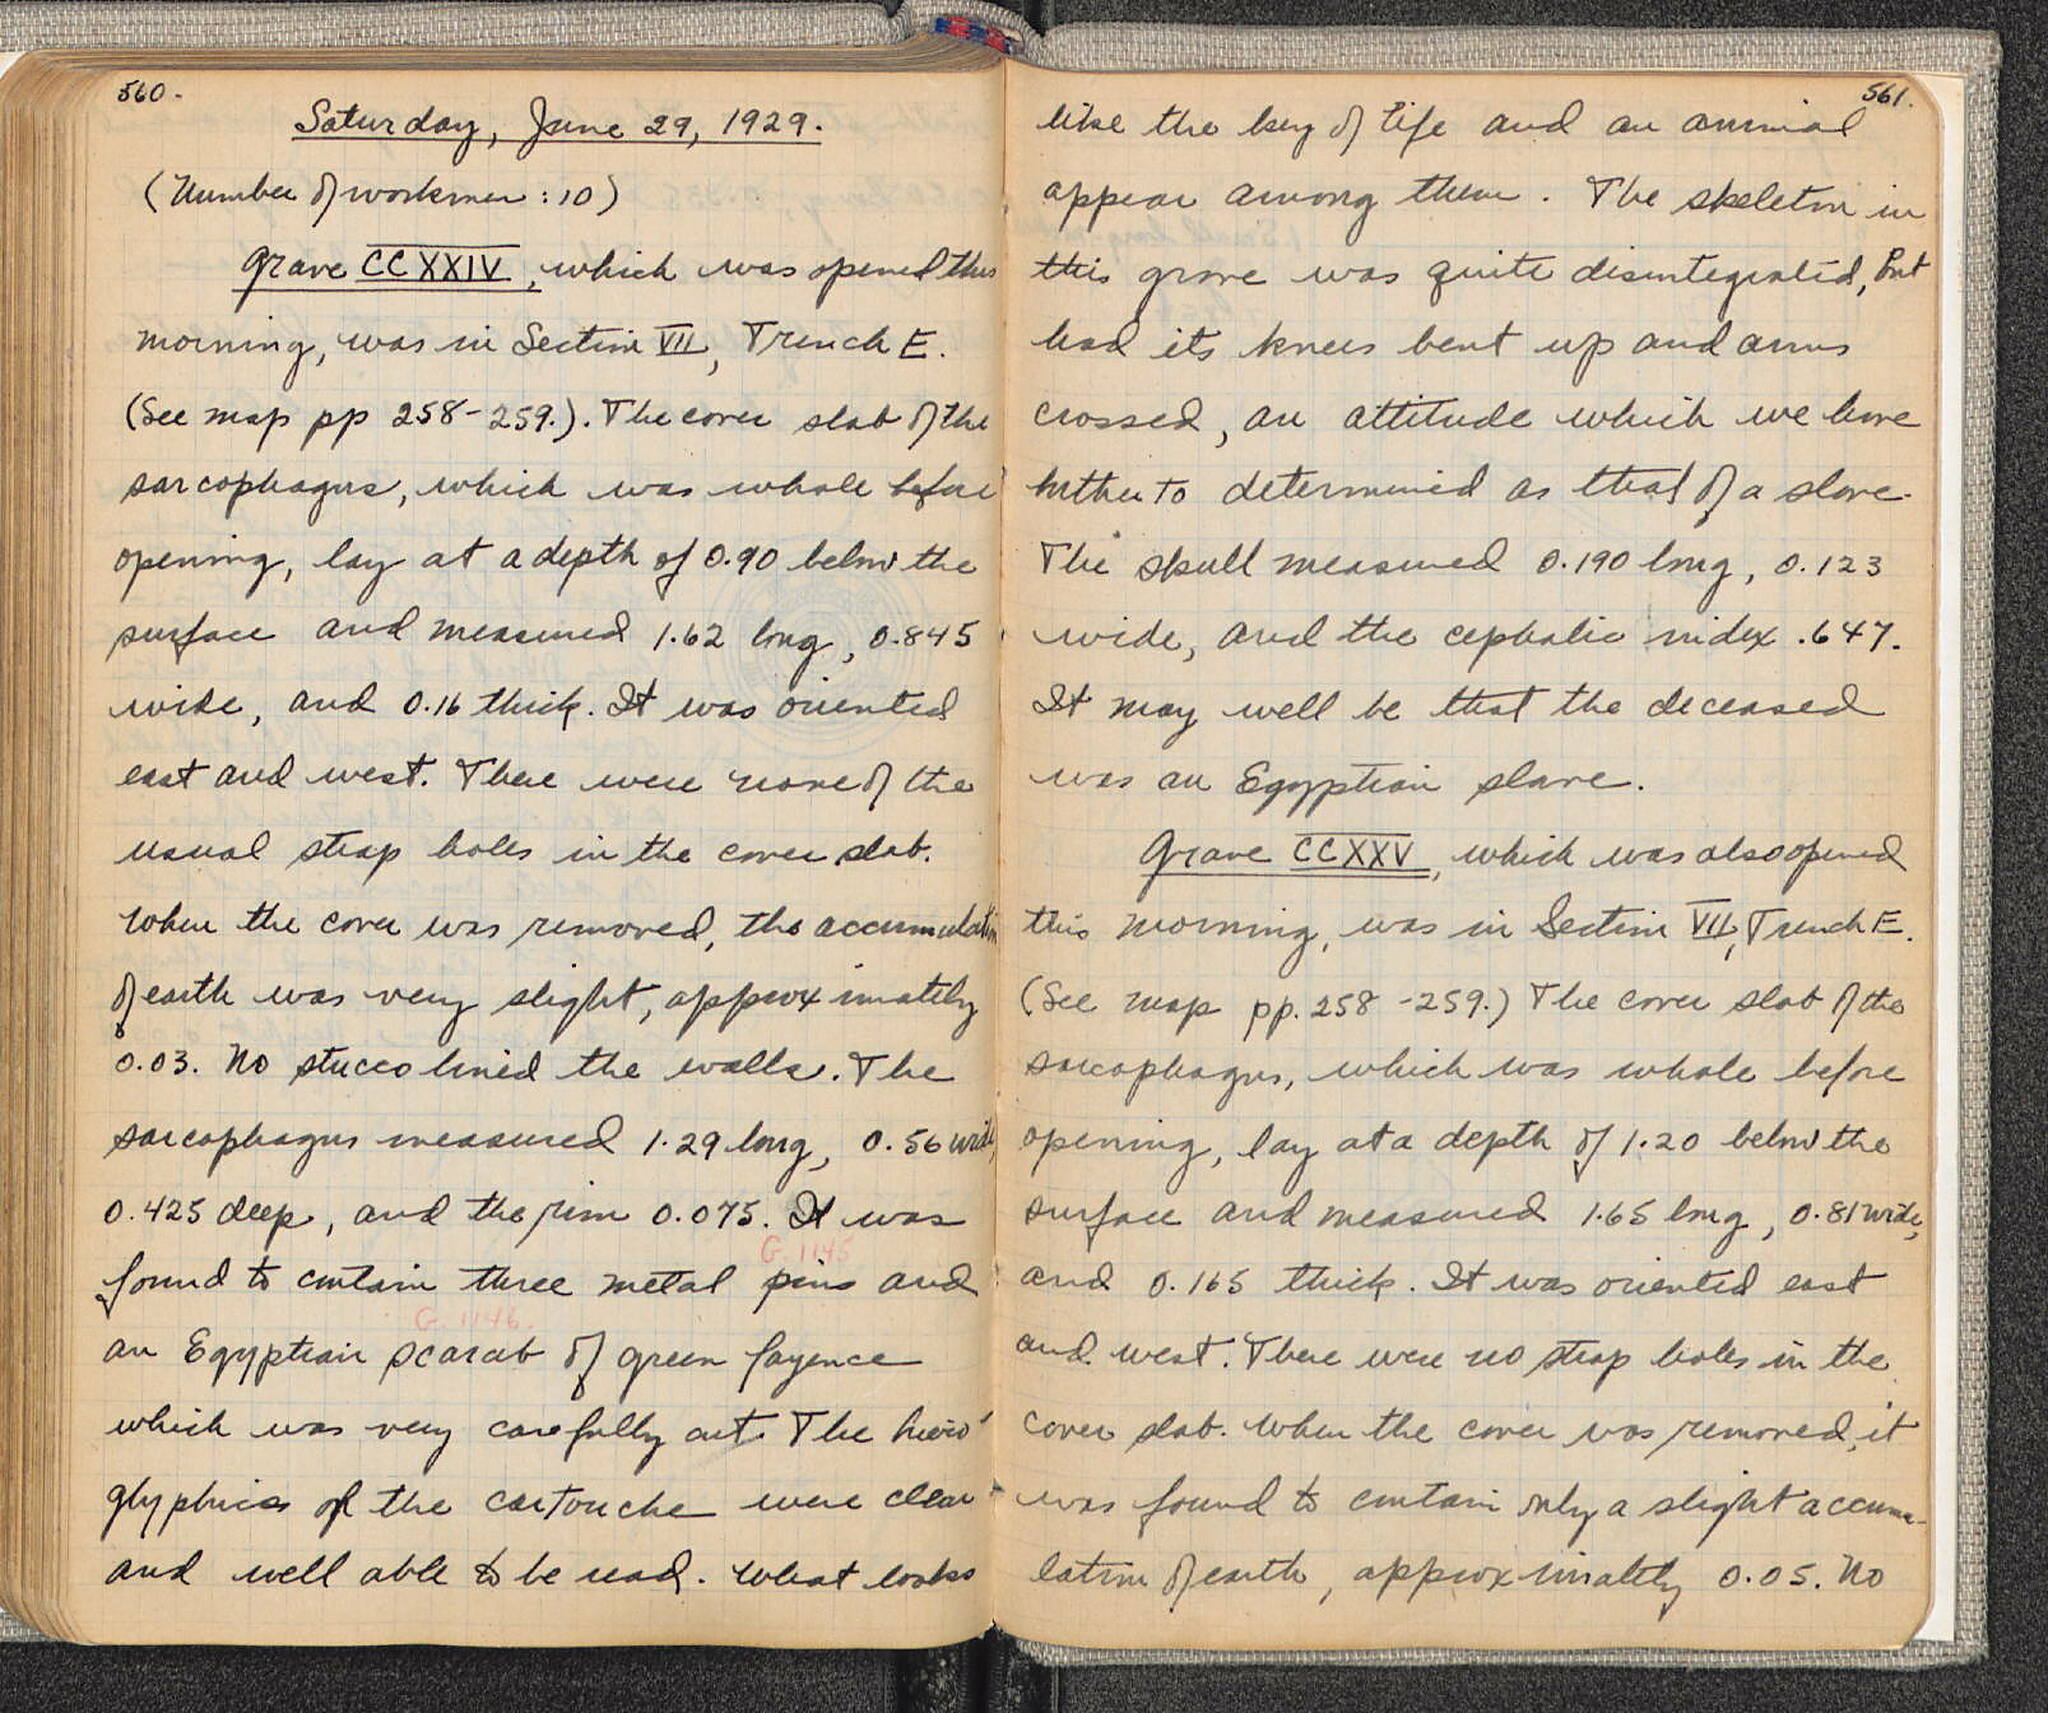 560.
Saturday, June 29, 1929.
(Number of workmen: 10)
Grave CCXXIV, which was opened this
morning, was in Section VII, Trench E.
(See map pp 258-259.). The cover slab of the
sarcophagus, which was whole before
opening, lay at a depth of 0.90 below the
surface and measured 1.62 long, 0.845
wide, and 0.16 thick. It was oriented
east and west. There were none of the
usual strap holes in the cover slab.
When the cover was removed, the accumulation
of earth was very slight, approximately
0.03. No stucco lined the walls. The
sarcophagus measured 1.29 long, 0.56 wide,
0.425 deep, and the rim 0.075. It was
G. 1145
found to contain three metal pins and
G. 1146.
an Egyptian scarab of green fayence
which was very carefully cut. The hiero-
glyphics of the cartouche were clear
and well able to be read. What looks
561.
like the key of life and an animal
appear among them. The skeleton in
this grave was quite disintegrated, but
had its knees bent up and arms
crossed, an attitude which we have
hitherto determined as that of a slave.
The skull measured 0.190 long, 0.123
wide, and the cephalic index .647.
It may well be that the deceased
was an Egyptian slave.
Grave CCXXV, which was also opened
this morning, was in Section VII, Trench E.
(See map pp. 258-259.) The cover slab of the
sarcophagus, which was whole before
opening, lay at a depth of 1.20 below the
surface and measured 1.65 long, 0.81 wide,
and 0.165 thick. It was oriented east
and west. There were no strap holes in the
cover slab. When the cover was removed, it
was found to contain only a slight accumu-
lation of earth, approximately 0.05. No